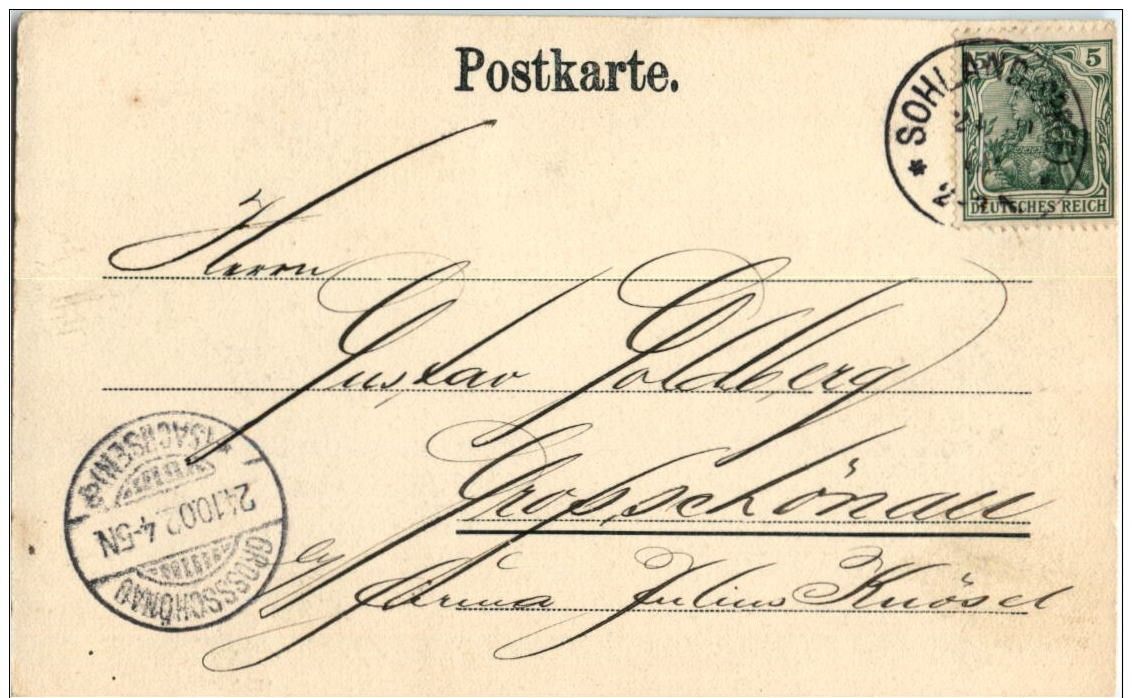 Postkarte.
5 5
SOHLAND (SPREE)
DEUTSCHES REICH
Herrn
Gustav Goldberg
Großschönau
Firma Julius Knösel
(SACHSEN)
24.10.02 4-5N
GROSSSCHÖNAU